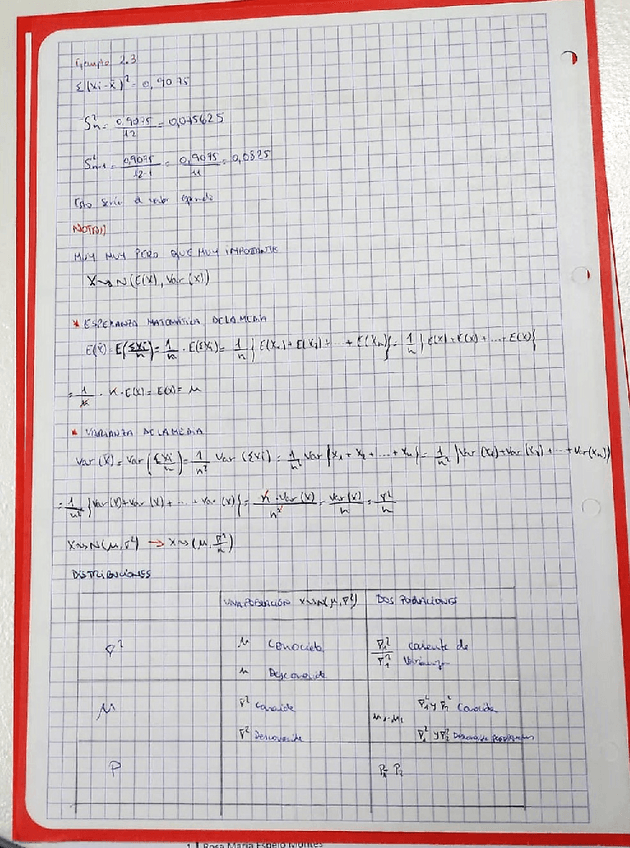 Ejemplo 2.3
Σ(xi-x̄)² = 0,9075
S²n = 0,9075/12 = 0,075625
S²n-1 = 0,9075/12-1 = 0,9075/11 = 0,0825
Esto sería a
NOTA)))
MUY MUY PERO QUE MUY IMPORTANTE
X ~> N(E(X), Var(X))
* ESPERANZA MATEMÁTICA DE LA MEDIA
E(x̄) = E(Σxi/n) = 1/n · E(Σxi) = 1/n {E(x1)+E(x2)+ ... + E(xn)} = 1/n {E(x)+E(x)+ ... +E(x)}
= 1/n · n · E(x) = E(x) = μ
* VARIANZA DE LA MEDIA
Var(x̄) = Var(Σxi/n) = 1/n² Var(Σxi) = 1/n² Var{x1+x2+ ... +xn} = 1/n² {Var(x1)+Var(x2)+ ... +Var(xn)}
= 1/n² {Var(x)+Var(x)+ ... Var(x)} = n·Var(x)/n² = Var(x)/n = σ²/n
X ~> N(μ, σ²) → x̄ ~> (μ, σ²/n)
DISTRIBUCIONES
UNA POBLACIÓN X ~> N(μ, σ²) DOS POBLACIONES
σ² μ Conocida σ1²/σ2² cociente de
μ Desconocida Varianzas
μ σ² Conocida μ1-μ2 σ1² y σ2² Conocida
σ² Desconocida σ1² y σ2² Desconocida
P P1 P2
1 | Rosa María Espejo Montes